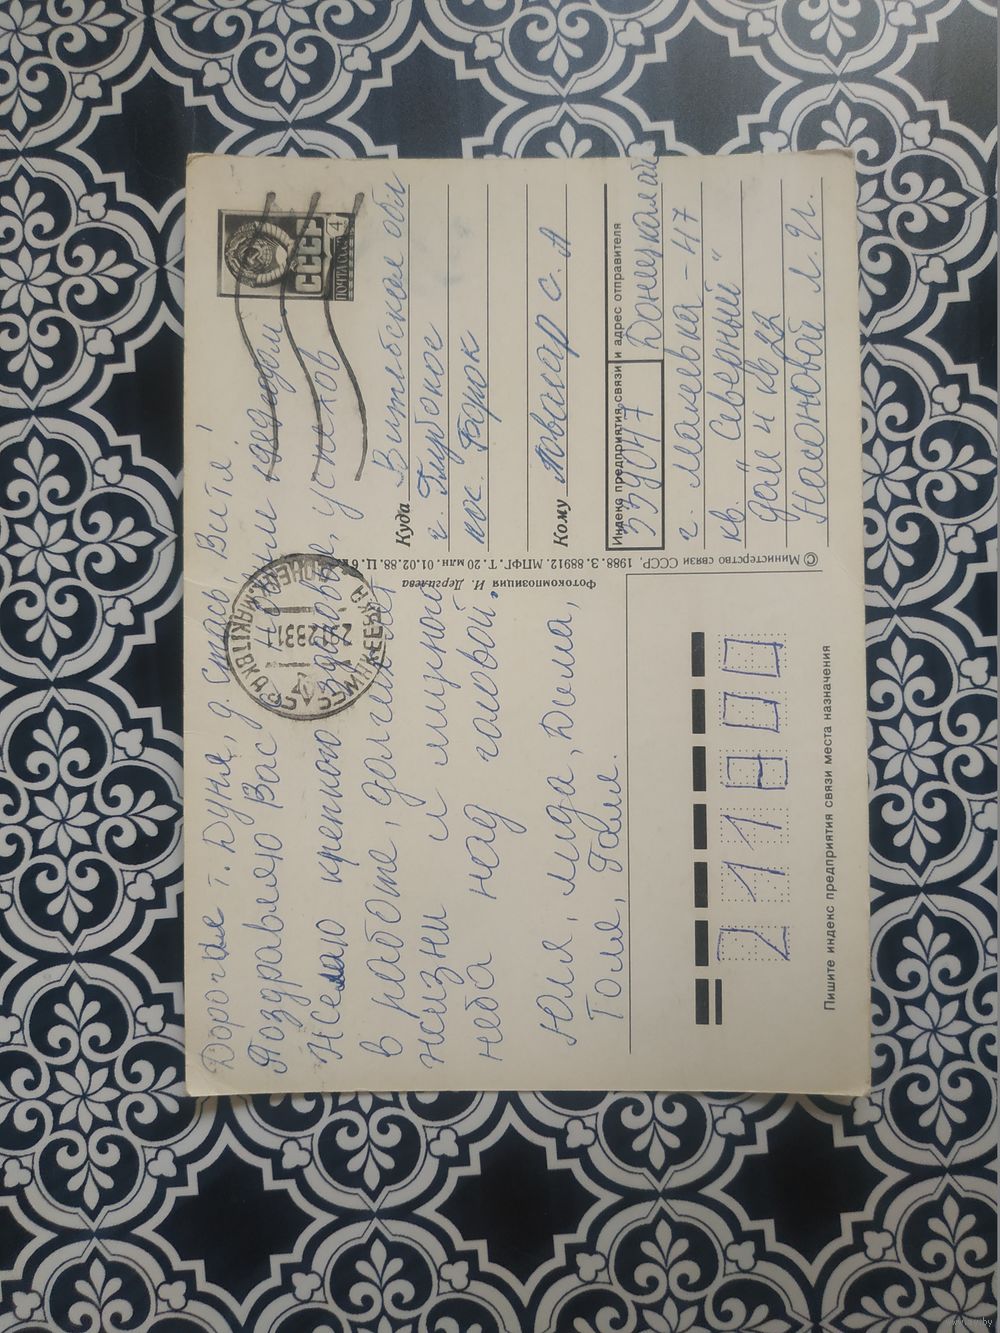 Дорогие т. Дуня, д. Стась, Витя!
Поздравляю Вас с Новым годом!
Желаю крепкого здоровья, успехов
в работе, долгих лет
жизни и мирного
неба над головой.
Юля, Лида, Дима,
Толя, Галя.
ПОЧТА СССР
СССР
4
МАКЕЕВКА
Куда Витебская обл
г. Глубокое
пос.
Кому
Индекс предприятия связи и адрес отправителя
339047 Донецкая
г. Макеевка-47
кв. Северный"
дом 4 кв 22
Л. Я.
© Министерство связи СССР, 1988. З. 88912. МПФГ. Т. 20 млн. 01.02.88. Ц. 6 к.
Фотокомпозиция И. Дергилева
211800
Пишите индекс предприятия связи места назначения
www.ay.by